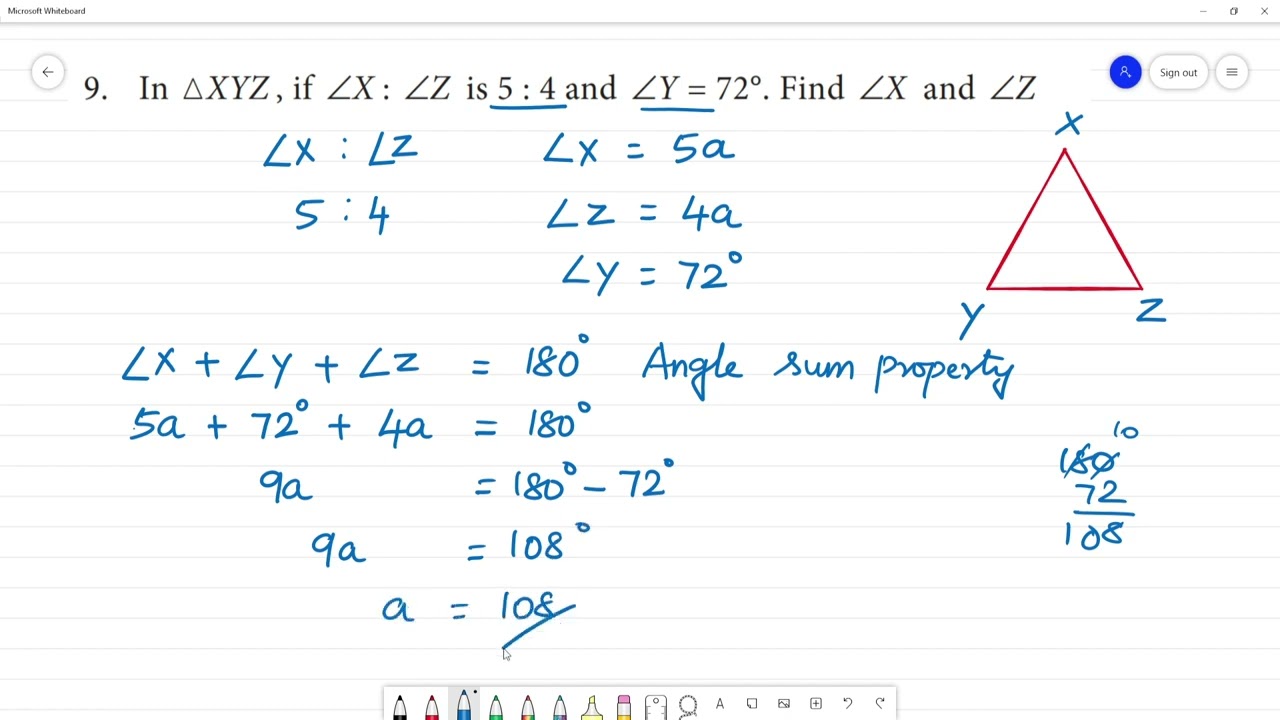 Microsoft Whiteboard
Sign out
9. In △XYZ, if ∠X : ∠Z is 5 : 4 and ∠Y = 72°. Find ∠X and ∠Z
∠X : ∠Z
5 : 4
∠X = 5a
∠Z = 4a
∠Y = 72°
X
Y
Z
∠X + ∠Y + ∠Z = 180° Angle sum property
5a + 72° + 4a = 180°
9a = 180° - 72°
9a = 108°
a = 108
10
180
72
108
A